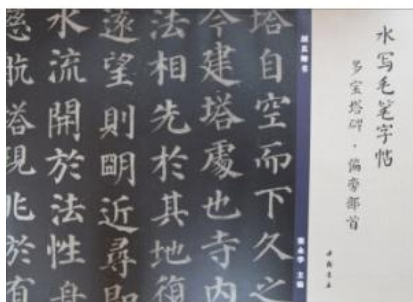 水写毛笔字帖
多宝塔碑·偏旁部首
颜真卿书
塔自空而下久之
今建塔處也寺内
法相先於其地復
遠望則明近尋即
水流開於法性舟
慈航塔現兆於有